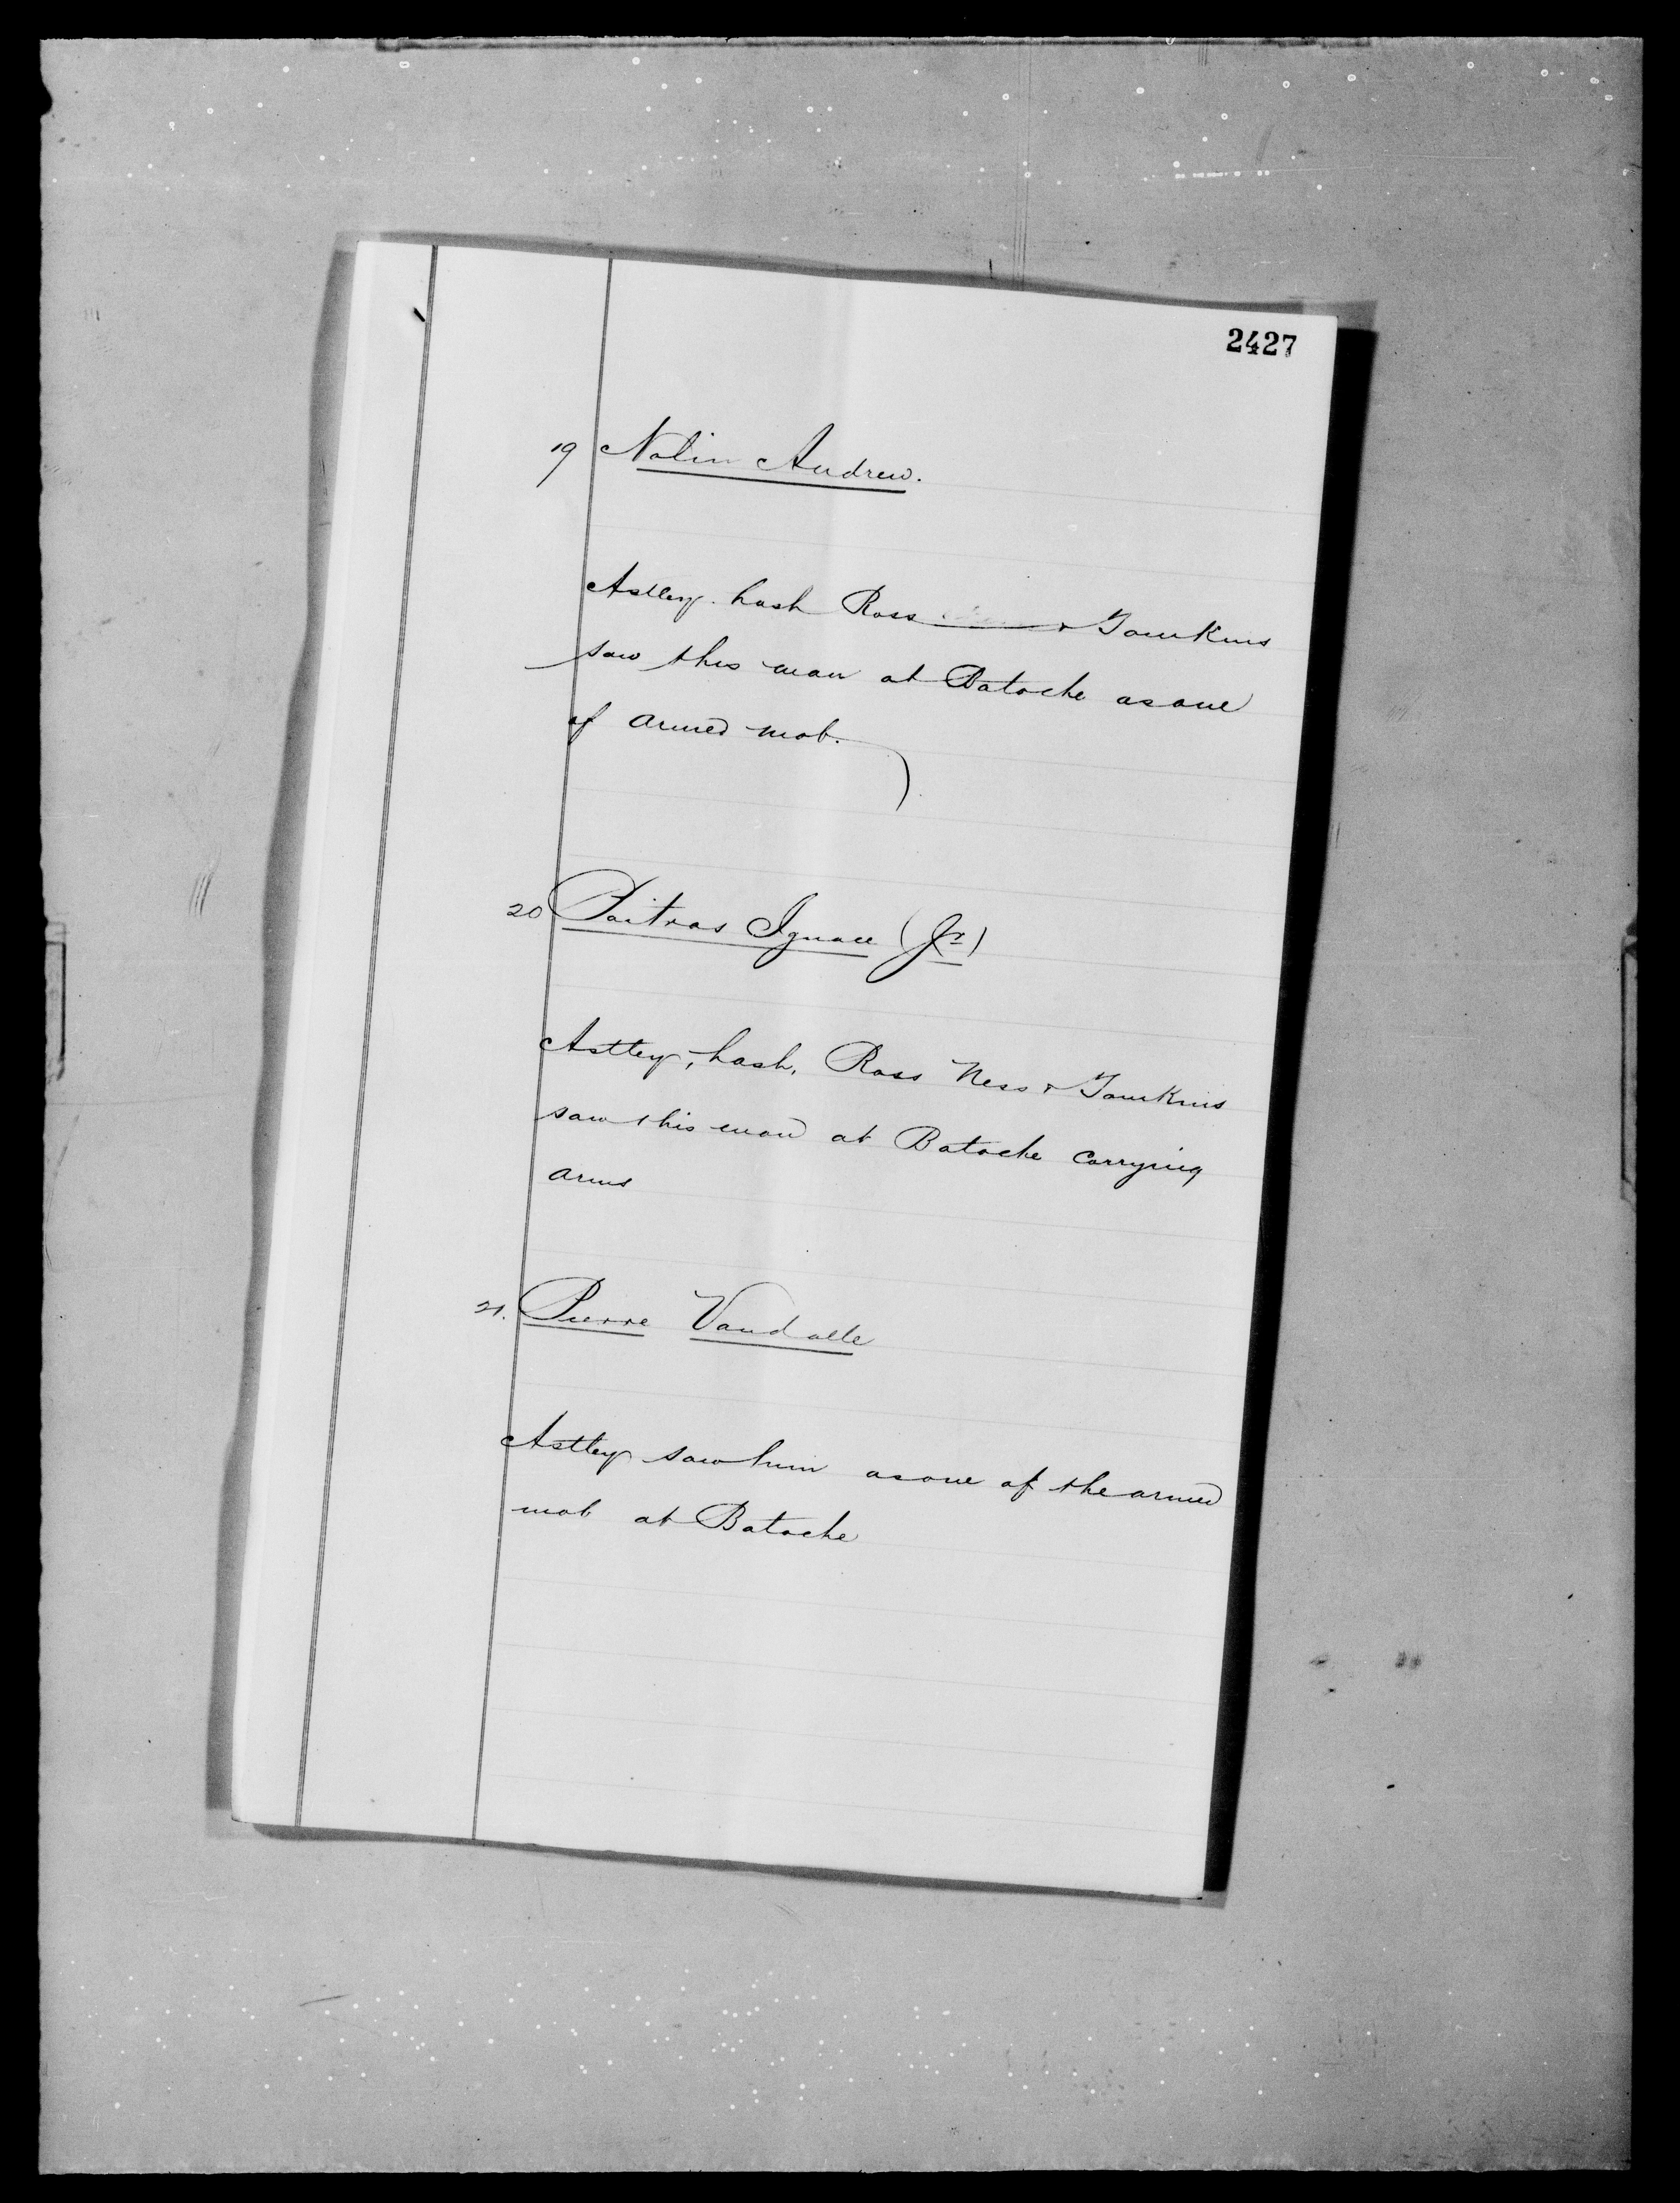 2427
19 Nolin Andrew.
Astley Nash Ross & Tomkins
saw this man at Batoche as one
of armed mob.
20 Poitras Ignace (Jr)
Astley, Nash, Ross Ness & Tomkins
saw this man at Batoche carrying
arms
21. Pierre Vandalle
Astley saw him as one of the armed
mob at Batoche